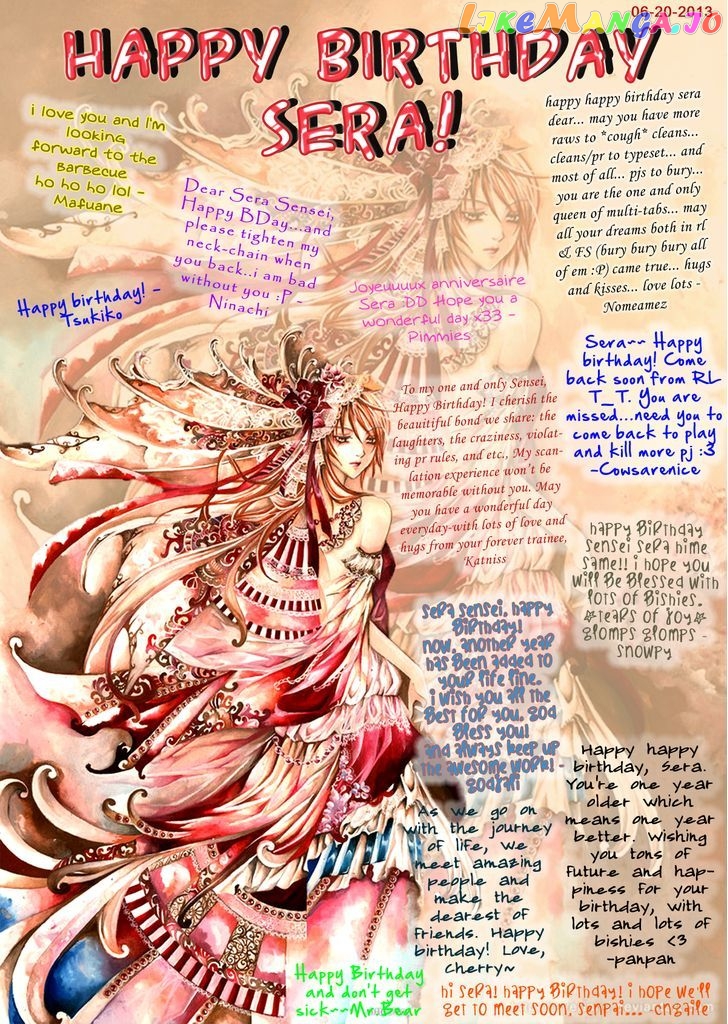 06-20-2013
LIKEMANGA.IO
HAPPY BIRTHDAY
SERA!
i love you and I'm
looking
forward to the
Barbecue
ho ho ho lol -
Mafuane
Dear Sera Sensei,
Happy BDay...and
please tighten my
neck-chain when
you back..i am bad
without you :P -
Ninachi
happy happy birthday sera
dear... may you have more
raws to *cough* cleans...
cleans/pr to typeset... and
most of all... pjs to bury...
you are the one and only
queen of multi-tabs... may
all your dreams both in rl
& FS (bury bury bury all
of em :P) came true... hugs
and kisses... love lots -
Nomeamez
Happy birthday! -
Tsukiko
Joyeuuuux anniversaire
Sera :DD Hope you a
wonderful day x33 -
Pimmies
Sera~~ Happy
birthday! Come
back soon from RL
T_T. You are
missed...need you to
come back to play
and kill more pj :3
-Cowsarenice
To my one and only Sensei,
Happy Birthday! I cherish the
beautiful bond we share: the
laughters, the craziness, violat-
ing pr rules, and etc., My scan-
lation experience won't be
memorable without you. May
you have a wonderful day
everyday-with lots of love and
hugs from your forever trainee,
Katniss
happy Birthday
sensei sera hime
same!! i hope you
will Be Blessed with
lots of Bishies.
☆tears of joy☆
glomps glomps -
snowpy
sera sensei, happy
Birthday!
now, another year
has Been added to
your life line.
i wish you all the
Best for you, god
Bless you!
and always keep up
the awesome work! -
Happy happy
birthday, Sera.
You're one year
older which
means one year
better. Wishing
you tons of
future and hap-
piness for your
birthday, with
lots and lots of
bishies <3
-panpan
As we go on
with the journey
of life, we
meet amazing
people and
make the
dearest of
friends. Happy
birthday! Love,
Cherry~
Happy Birthday
and don't get
sick~~Mr.Bear
hi seRa! happy BiRthday! i hope we'll
get to meet soon, senpai...- cngaile